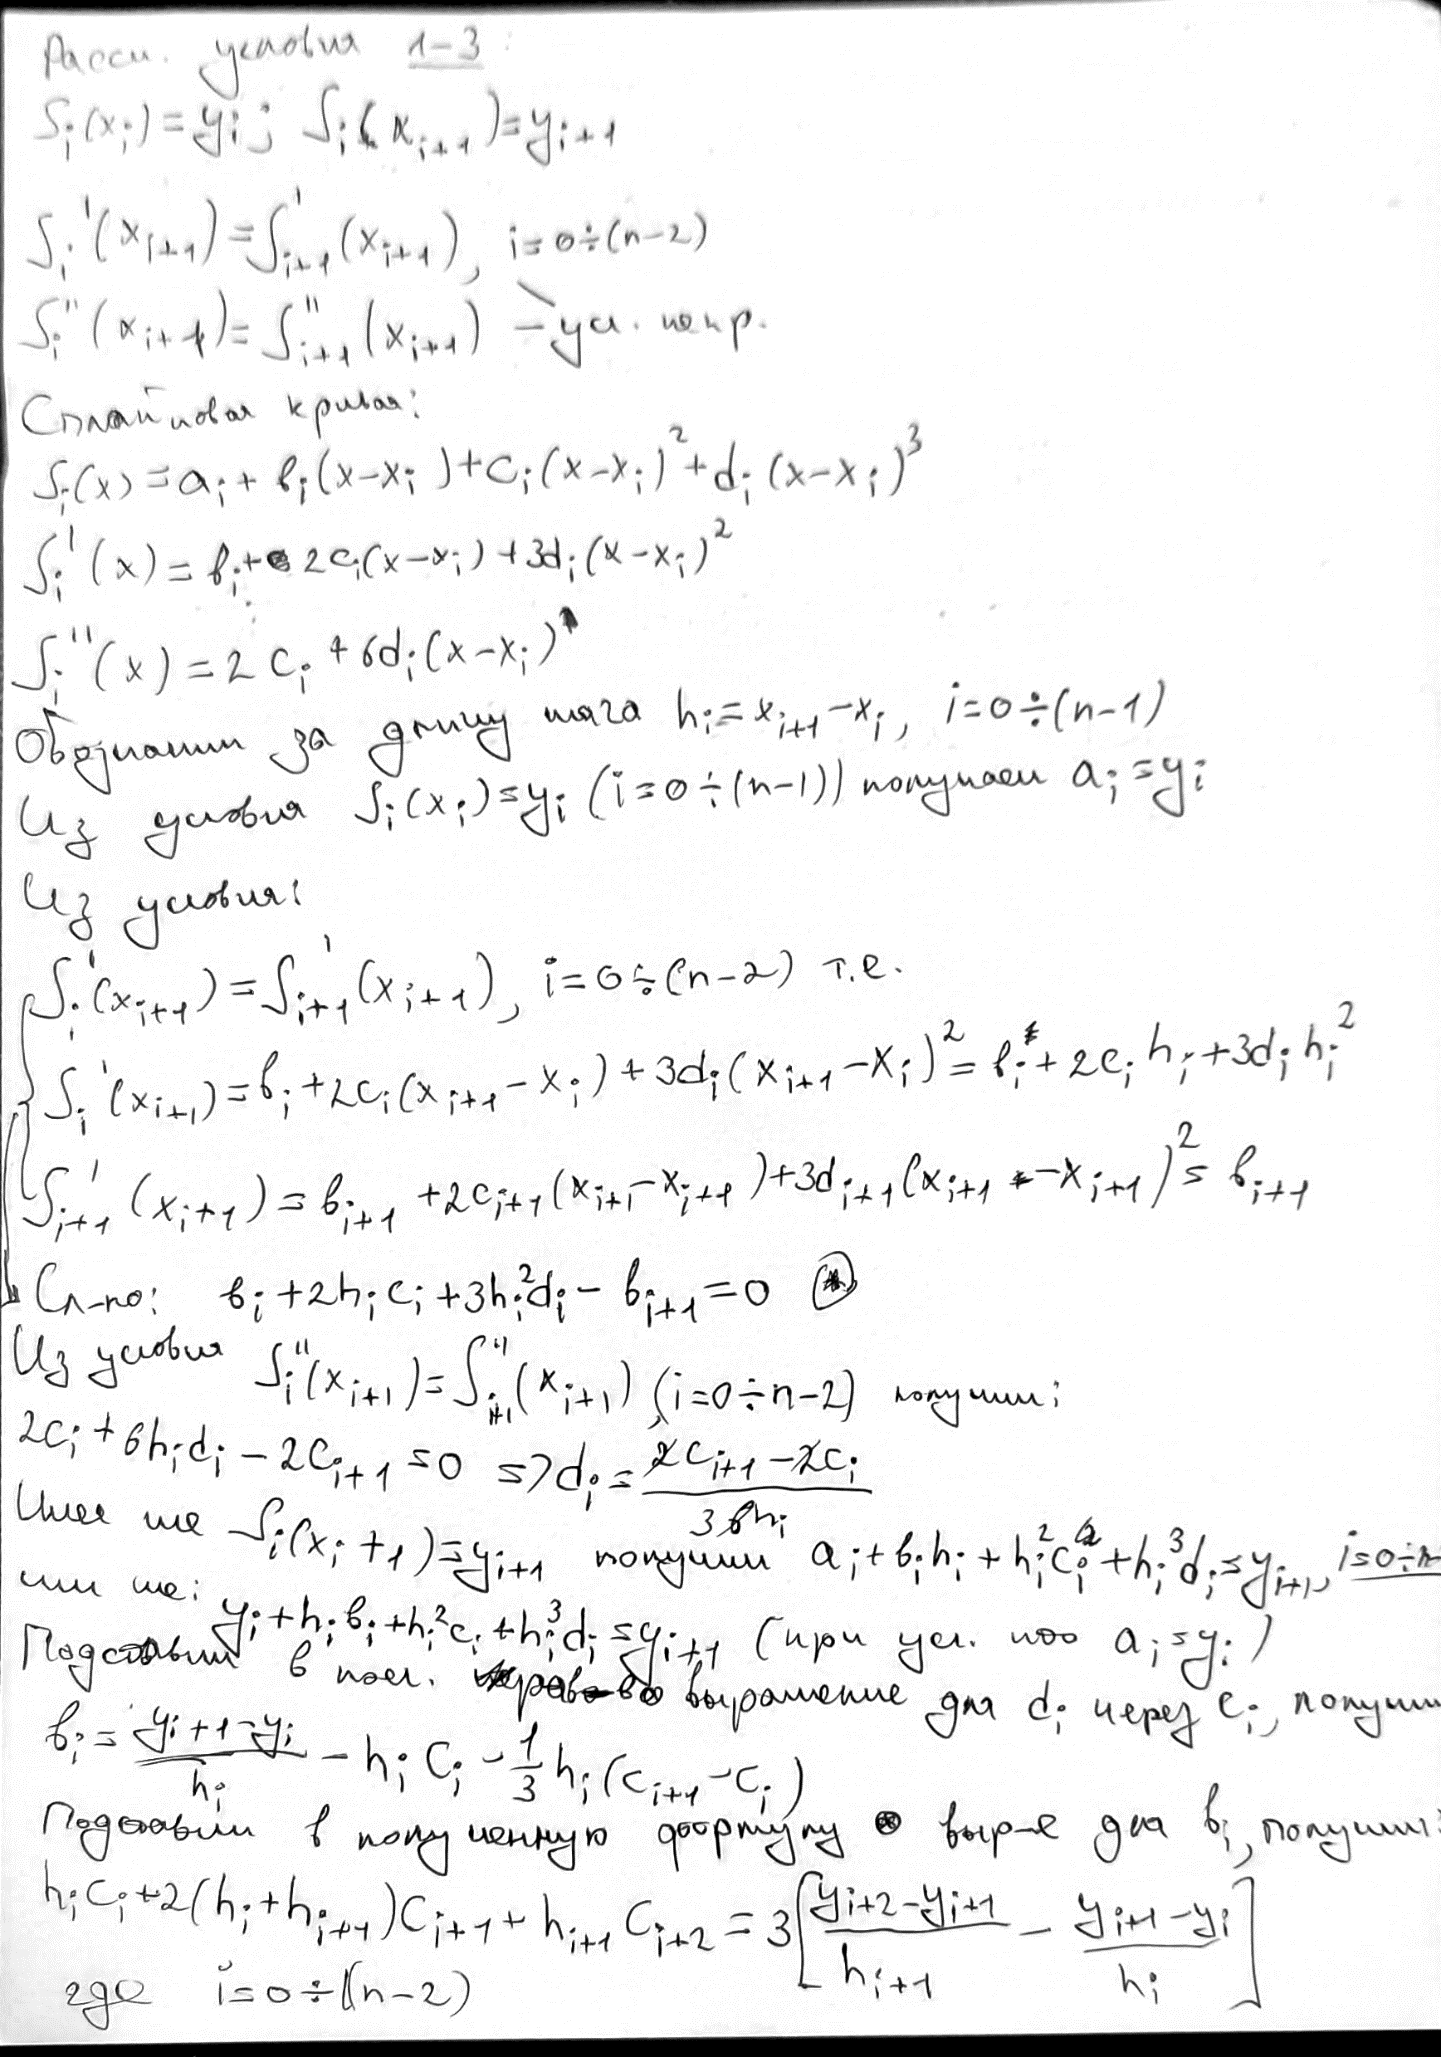 Рассм. условия 1-3:
S_i(x_i) = y_i; S_i(x_{i+1}) = y_{i+1}
S_i'(x_{i+1}) = S_{i+1}'(x_{i+1}), i = 0÷(n-2)
S_i''(x_{i+1}) = S_{i+1}''(x_{i+1}) - ус. непр.
Сплайновая кривая:
S_i(x) = a_i + b_i(x-x_i) + c_i(x-x_i)^2 + d_i(x-x_i)^3
S_i'(x) = b_i + 2c_i(x-x_i) + 3d_i(x-x_i)^2
S_i''(x) = 2c_i + 6d_i(x-x_i)
Обозначим за длину шага h_i = x_{i+1} - x_i, i = 0÷(n-1)
Из условия S_i(x_i) = y_i (i = 0÷(n-1)) получаем a_i = y_i
Из условия:
S_i'(x_{i+1}) = S_{i+1}'(x_{i+1}), i = 0÷(n-2) т.е.
S_i'(x_{i+1}) = b_i + 2c_i(x_{i+1} - x_i) + 3d_i(x_{i+1} - x_i)^2 = b_i + 2c_i h_i + 3d_i h_i^2
S_{i+1}'(x_{i+1}) = b_{i+1} + 2c_{i+1}(x_{i+1} - x_{i+1}) + 3d_{i+1}(x_{i+1} - x_{i+1})^2 = b_{i+1}
Сл-но: b_i + 2h_i c_i + 3h_i^2 d_i - b_{i+1} = 0 (*)
Из условия S_i''(x_{i+1}) = S_{i+1}''(x_{i+1}), (i = 0÷n-2) получим:
2c_i + 6h_i d_i - 2c_{i+1} = 0 => d_i = (2c_{i+1} - 2c_i) / (3 6h_i)
S_i(x_i+1) = y_{i+1} получим a_i + b_i h_i + h_i^2 c_i + h_i^3 d_i = y_{i+1}, i = 0÷n
или же: y_i + h_i b_i + h_i^2 c_i + h_i^3 d_i = y_{i+1} (при усл. a_i = y_i)
Подставим в посл. выражение для d_i через c_i, получим
b_i = (y_{i+1} - y_i)/h_i - h_i c_i - 1/3 h_i (c_{i+1} - c_i)
Подставим в полученную формулу выр-е для b_i, получим:
h_i c_i + 2(h_i + h_{i+1})c_{i+1} + h_{i+1} c_{i+2} = 3[(y_{i+2} - y_{i+1})/h_{i+1} - (y_{i+1} - y_i)/h_i]
где i = 0÷(n-2)